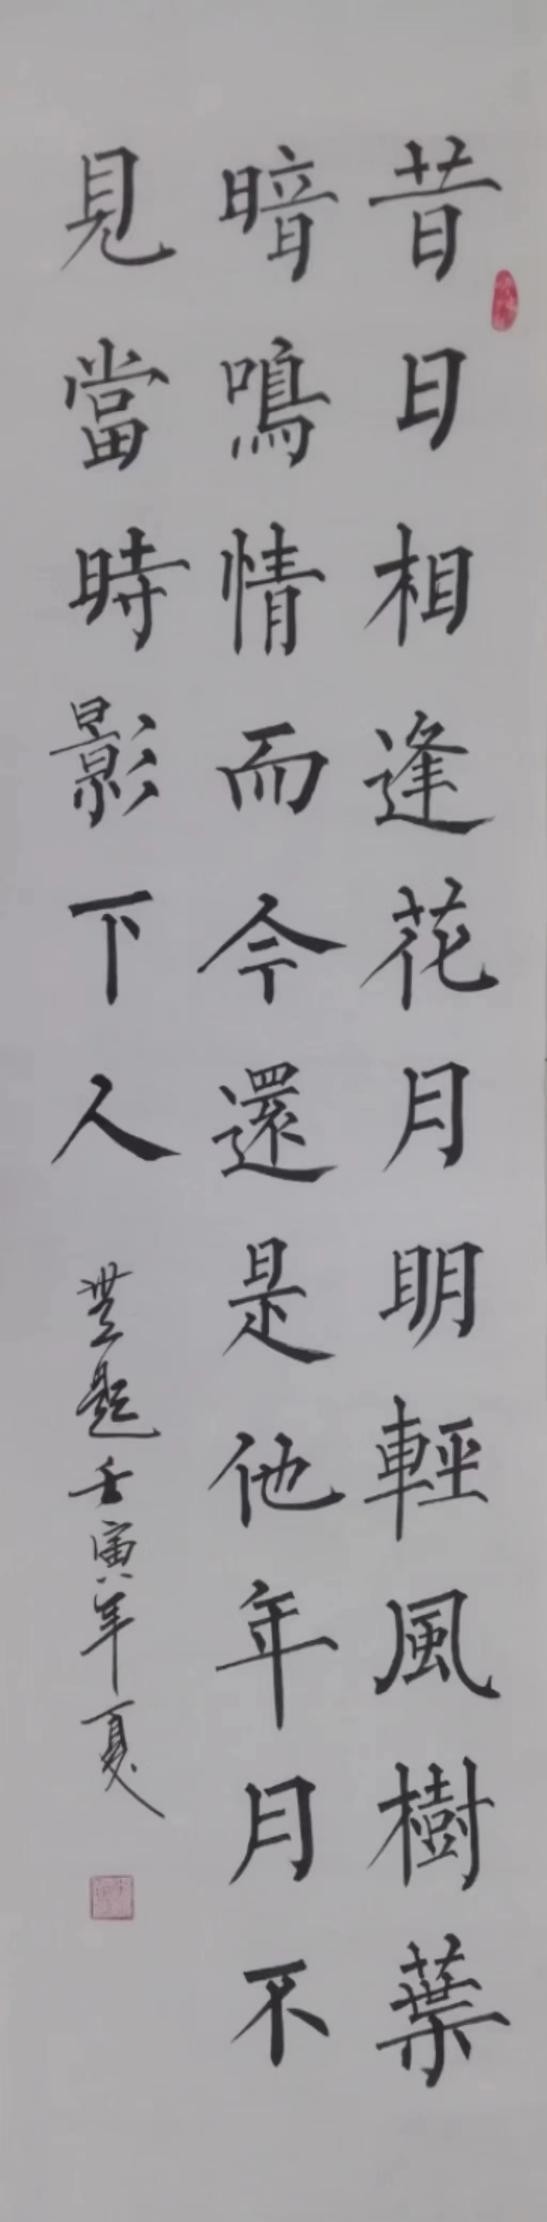 昔日相逢花月明輕風樹葉
暗鳴情而今還是他年月不
見當時影下人
題壬寅年夏